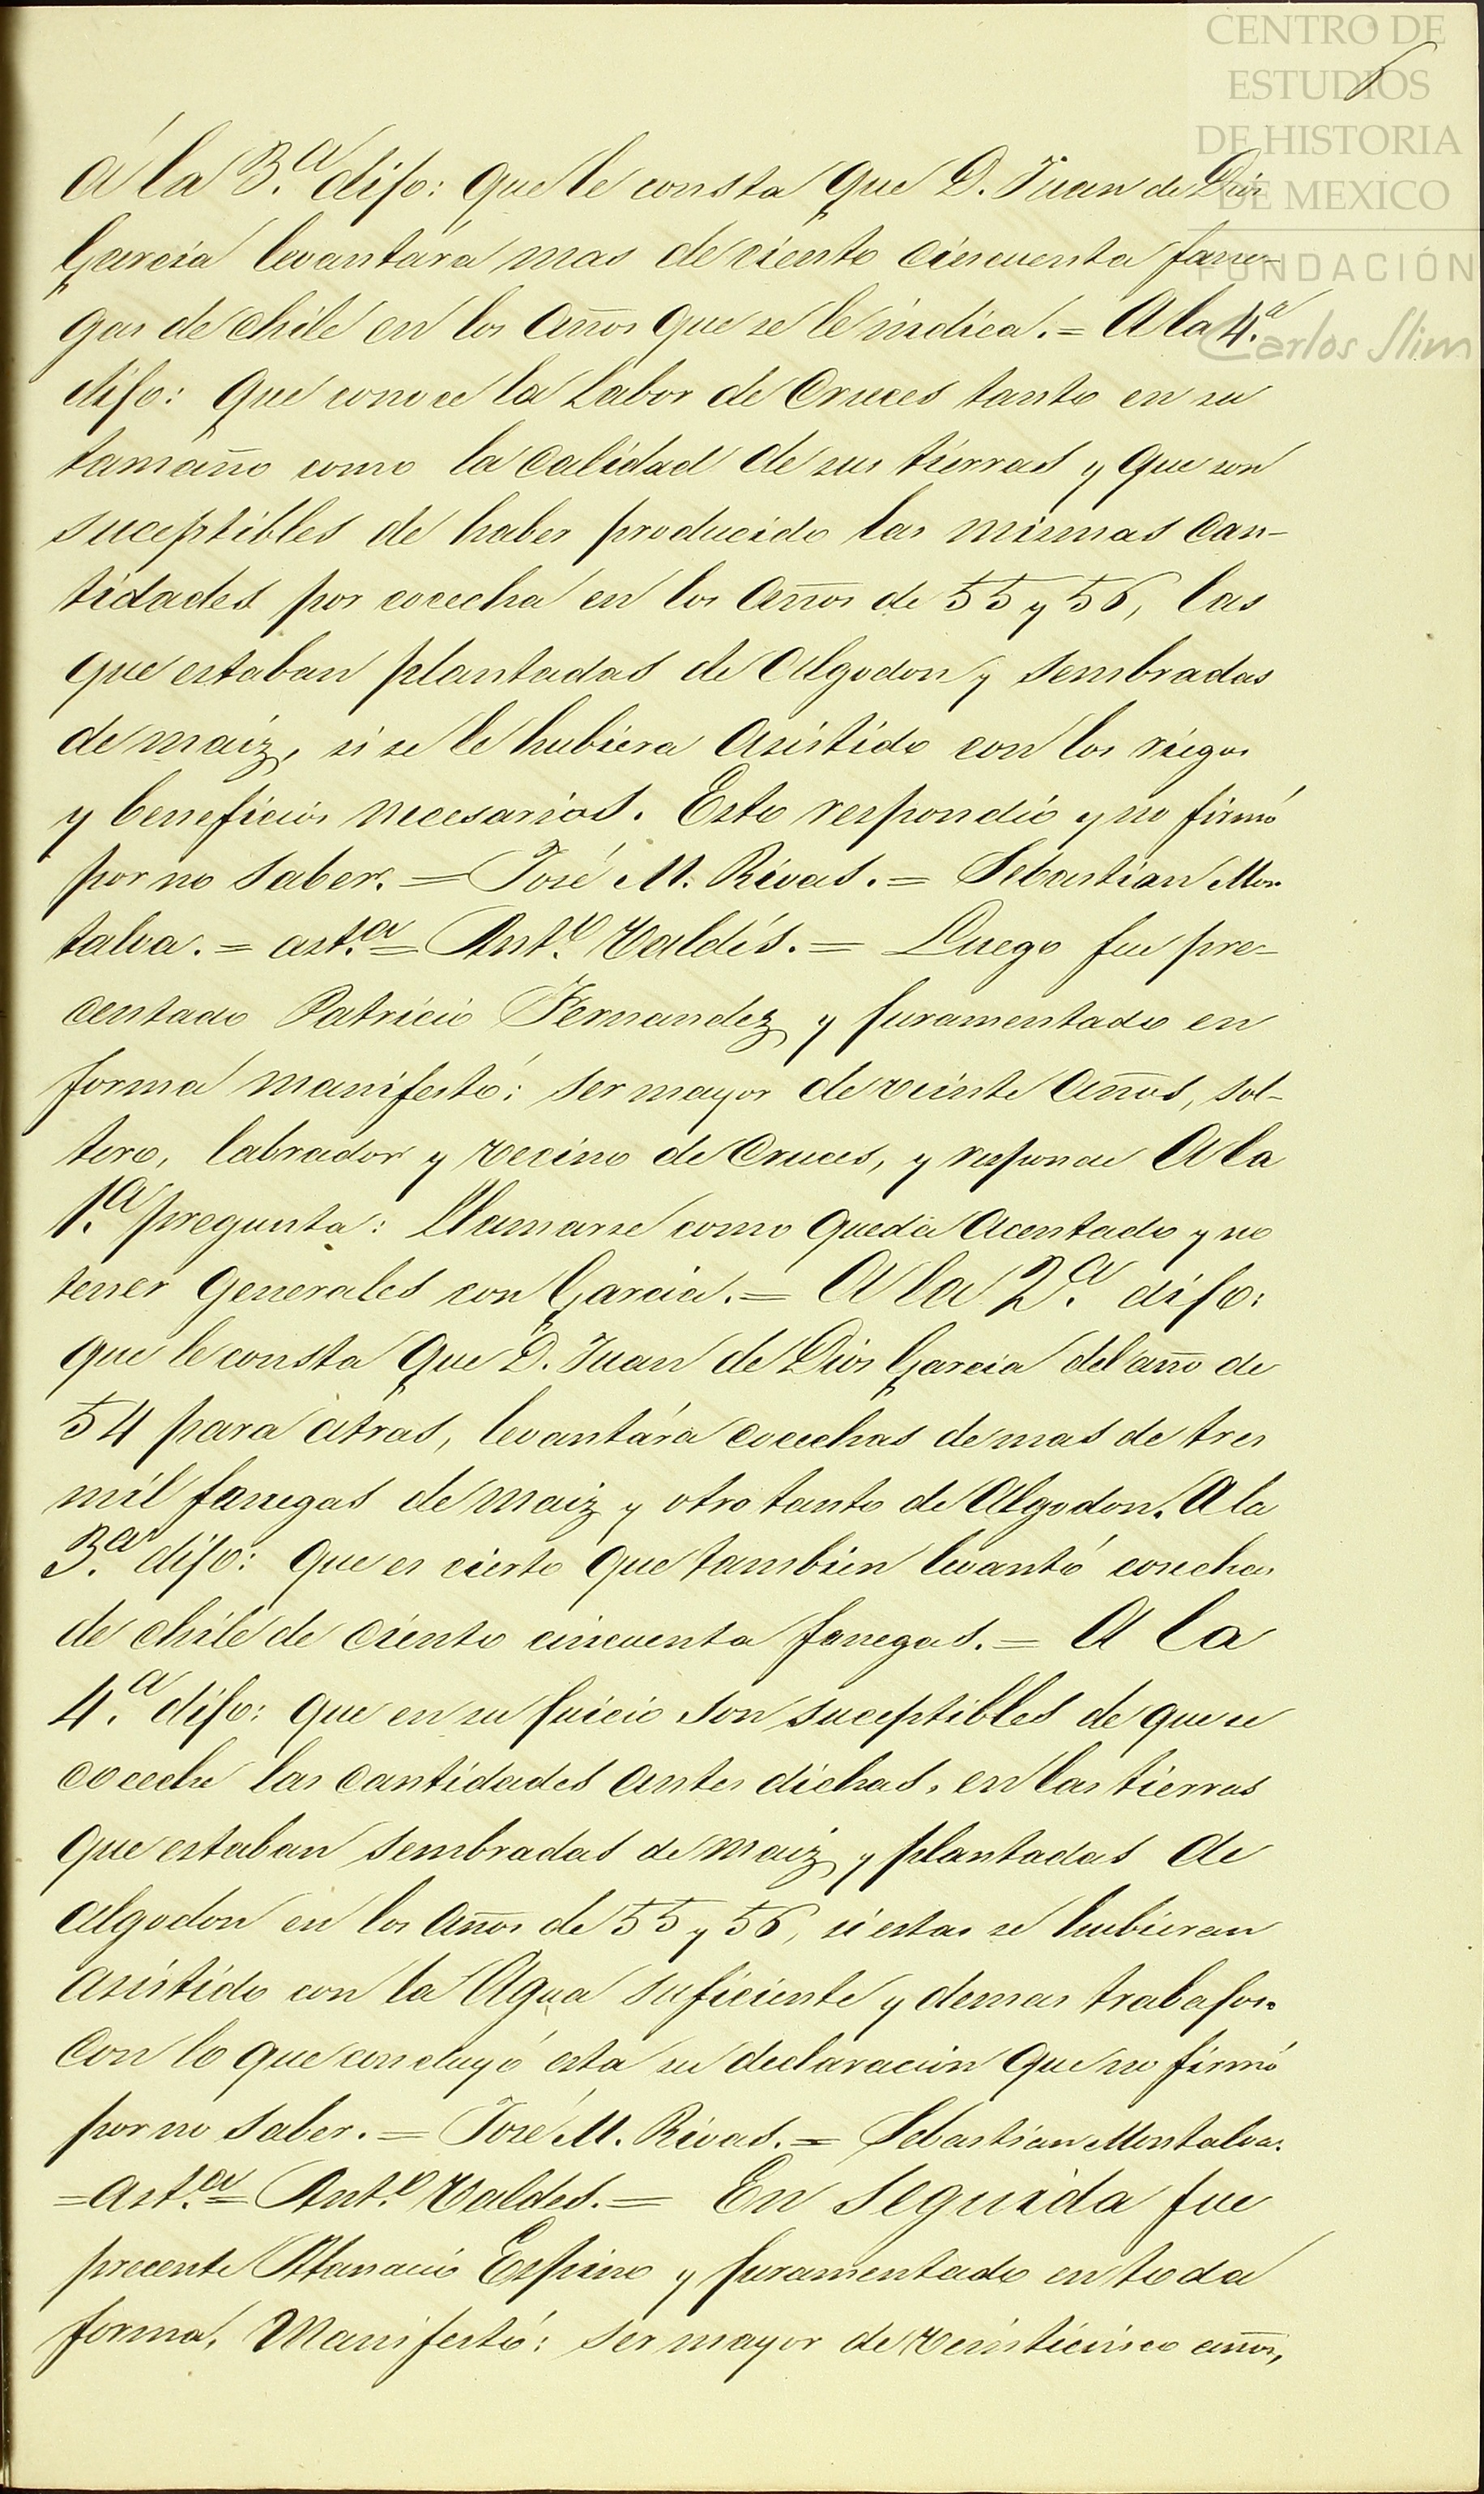 CENTRO DE
ESTUDIOS
DE HISTORIA
DE MEXICO
FUNDACIÓN
Carlos Slim
á la 3.ª dijo: que le consta que D. Juan de Dios
Garcia levantára mas de ciento cincuenta fane-
gas de chile en los años que se le indica. = A la 4.ª
dijo: que conoce la Labor de Cruces tanto en su
tamaño como la calidad de sus tierras y que son
suceptibles de haber producido las mismas can-
tidades por cocecha en los años de 55 y 56, las
que estaban plantadas de Algodon y sembradas
de maiz, si se le hubiera asistido con los riegos
y beneficios necesarios. Esto respondió y no firmó
por no saber. = José M. Rivas. = Sebastian Mon
talva. = ast.ª = Ant.º Valdés. = Luego fue pre-
centado Patricio Fernandez y juramentado en
forma manifestó: ser mayor de veinte años, sol-
tero, labrador y vecino de Cruces, y responde A la
1.ª pregunta: llamarse como queda acentado y no
tener generales con Garcia. = A la 2.ª dijo:
que le consta que D. Juan de Dios Garcia del año de
54 para atras, levantára cocechas de mas de tres
mil fanegas de maiz y otro tanto de Algodon. A la
3.ª dijo: que es cierto que tambien levantó cosechas
de chile de ciento cincuenta fanegas. = A la
4.ª dijo: que en su juicio son suceptibles de que se
coceche las cantidades antes dichas, en las tierras
que estaban sembradas de maiz y plantadas de
algodon en los años de 55 y 56, si estas se hubieran
asistido con la Agua suficiente y demas trabajos.
Con lo que concluyó esta su declaracion que no firmó
por no saber. = José M. Rivas. = Sebastian Montalva.
= ast.ª = Ant.º Valdes. = En seguida fue
precente Atanacio Espino y juramentado en toda
forma, Manifestó: ser mayor de veinticinco años,